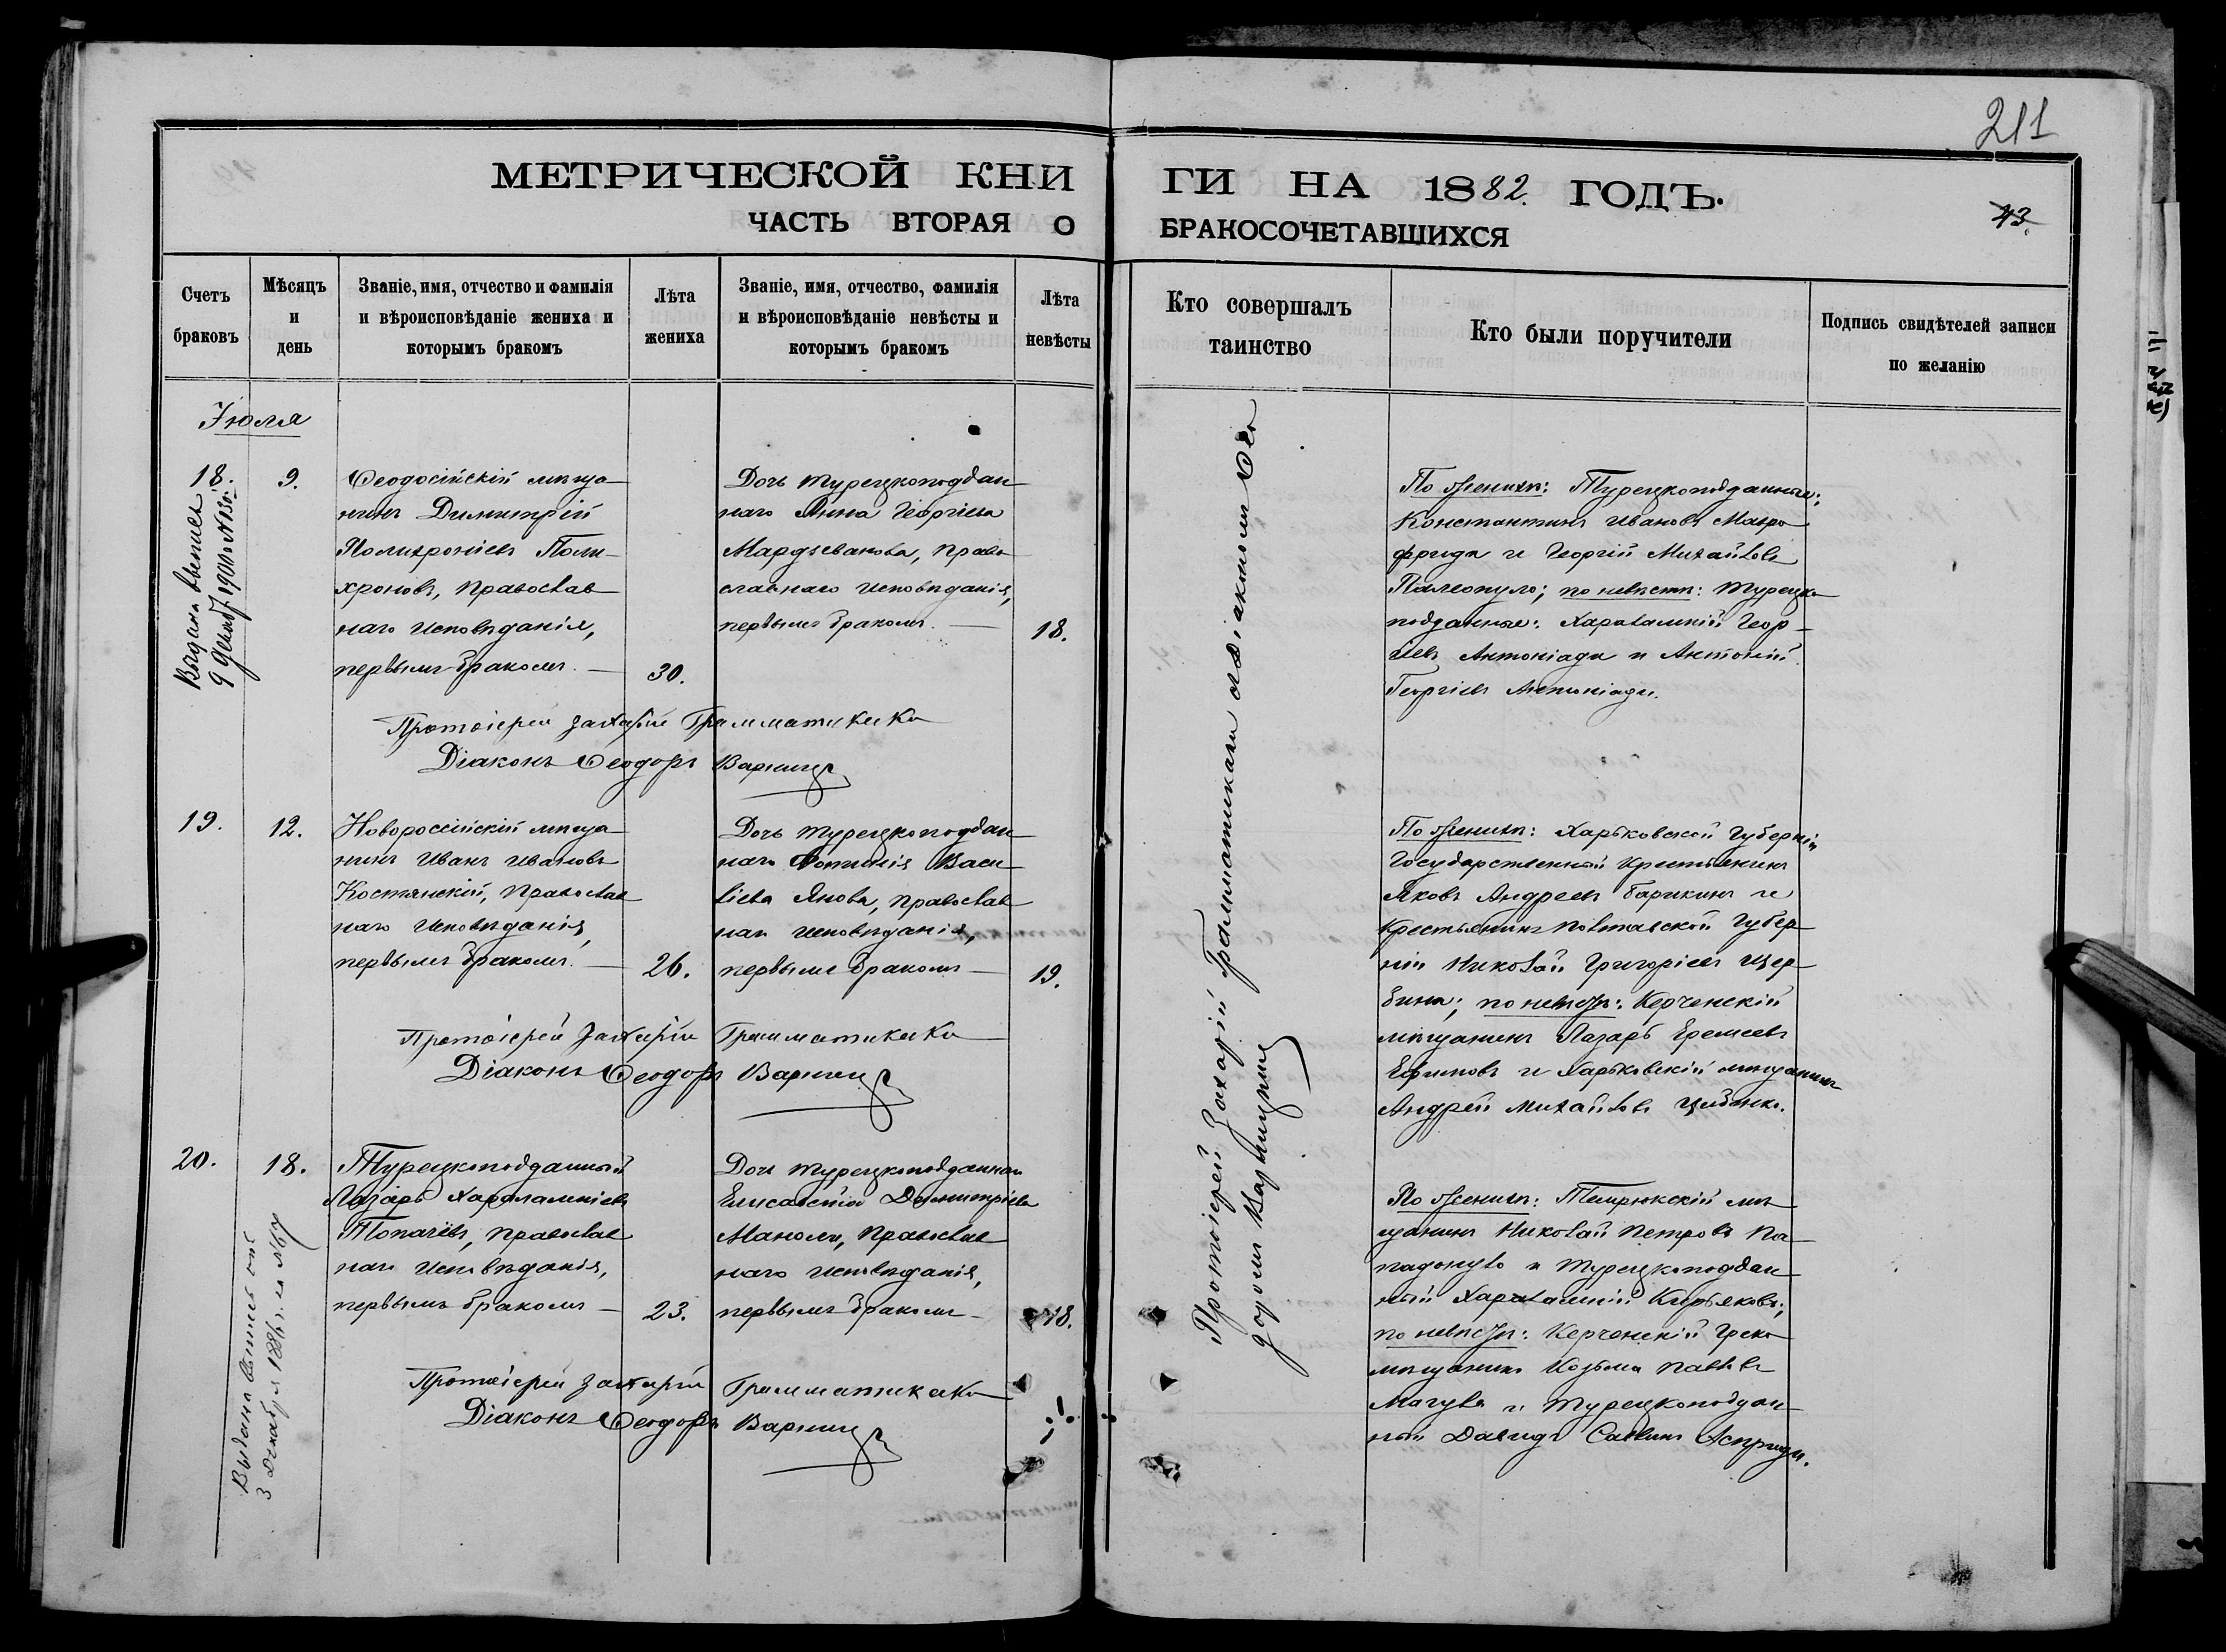 211
МЕТРИЧЕСКОЙ КНИ ГИ НА 1882. ГОДЪ.
43.
ЧАСТЬ ВТОРАЯ О БРАКОСОЧЕТАВШИХСЯ
Счетъ браковъ
Мѣсяцъ и день
Званіе, имя, отчество и фамилія
и вѣроисповѣданіе жениха и
которымъ бракомъ
Лѣта жениха
Званіе, имя, отчество, фамилія
и вѣроисповѣданіе невѣсты и
которымъ бракомъ
Лѣта невѣсты
Кто совершалъ
таинство
Кто были поручители
Подпись свидѣтелей записи
по желанію
Іюля
18.
9.
Ѳеодосійскій мѣща
нинъ Димитрій
Полихроніевъ Поли-
хроновъ, православ
наго исповѣданія,
первымъ бракомъ. —
30.
Дочь турецкоподдан
наго Анна Георгіева
православнаго исповѣданія,
первымъ бракомъ. —
18.
Выдана выпись
9 1901 №
Протоіерей Захарій Грамматикаки
Діаконъ Ѳеодоръ
По женихѣ: Турецкоподданные:
Константинъ Ивановъ Мавро
фриди и Георгій Михайловъ
Палеопуло; по невѣстѣ: турецко
подданные: Харалампій Геор-
гіевъ Антоніади и Антоній
Георгіевъ Антоніади.
19.
12.
Новороссійскій мѣща
нинъ Иванъ Ивановъ
Костянскій, православ
наго исповѣданія,
первымъ бракомъ. —
26.
Дочь турецкоподдан
наго Фотинія Васи
ліева Янова, православ
наго исповѣданія,
первымъ бракомъ —
19.
Протоіерей Захарій Грамматикаки
Діаконъ Ѳеодоръ
По женихѣ: Харьковской Губерніи
Государственный крестьянинъ
Яковъ Андреевъ Барикинъ и
крестьянинъ Полтавской Губер-
ніи Николай Григоріевъ Щер-
бина; по невѣстѣ: Керченскій
мѣщанинъ Лазарь Еремеевъ
Ефимовъ и Харьковскій мѣщанинъ
Андрей Михайловъ Цыбенко.
20.
18.
Турецкоподданный
Лазарь Харалампіевъ
православ
наго исповѣданія,
первымъ бракомъ —
23.
Дочь турецкоподданнаго
Елисавета Димитріева
Маноли, православ
наго исповѣданія,
первымъ бракомъ —
18.
Выдана выпись
3 Декабря 1886 г. за № 67
Протоіерей Захарій Грамматикаки
Діаконъ Ѳеодоръ
По женихѣ: Темрюкскій мѣ
щанинъ Николай Петровъ Па-
падопуло и турецкоподдан
ный Харалампій Кирьяковъ;
по невѣстѣ: Керченскій Греко
мѣщанинъ Козьма Павловъ
Мачула и турецкоподдан
ный Давидъ Саввинъ Асприди.
Протоіерей Захарій Грамматикаки съ діакономъ Ѳео
доромъ